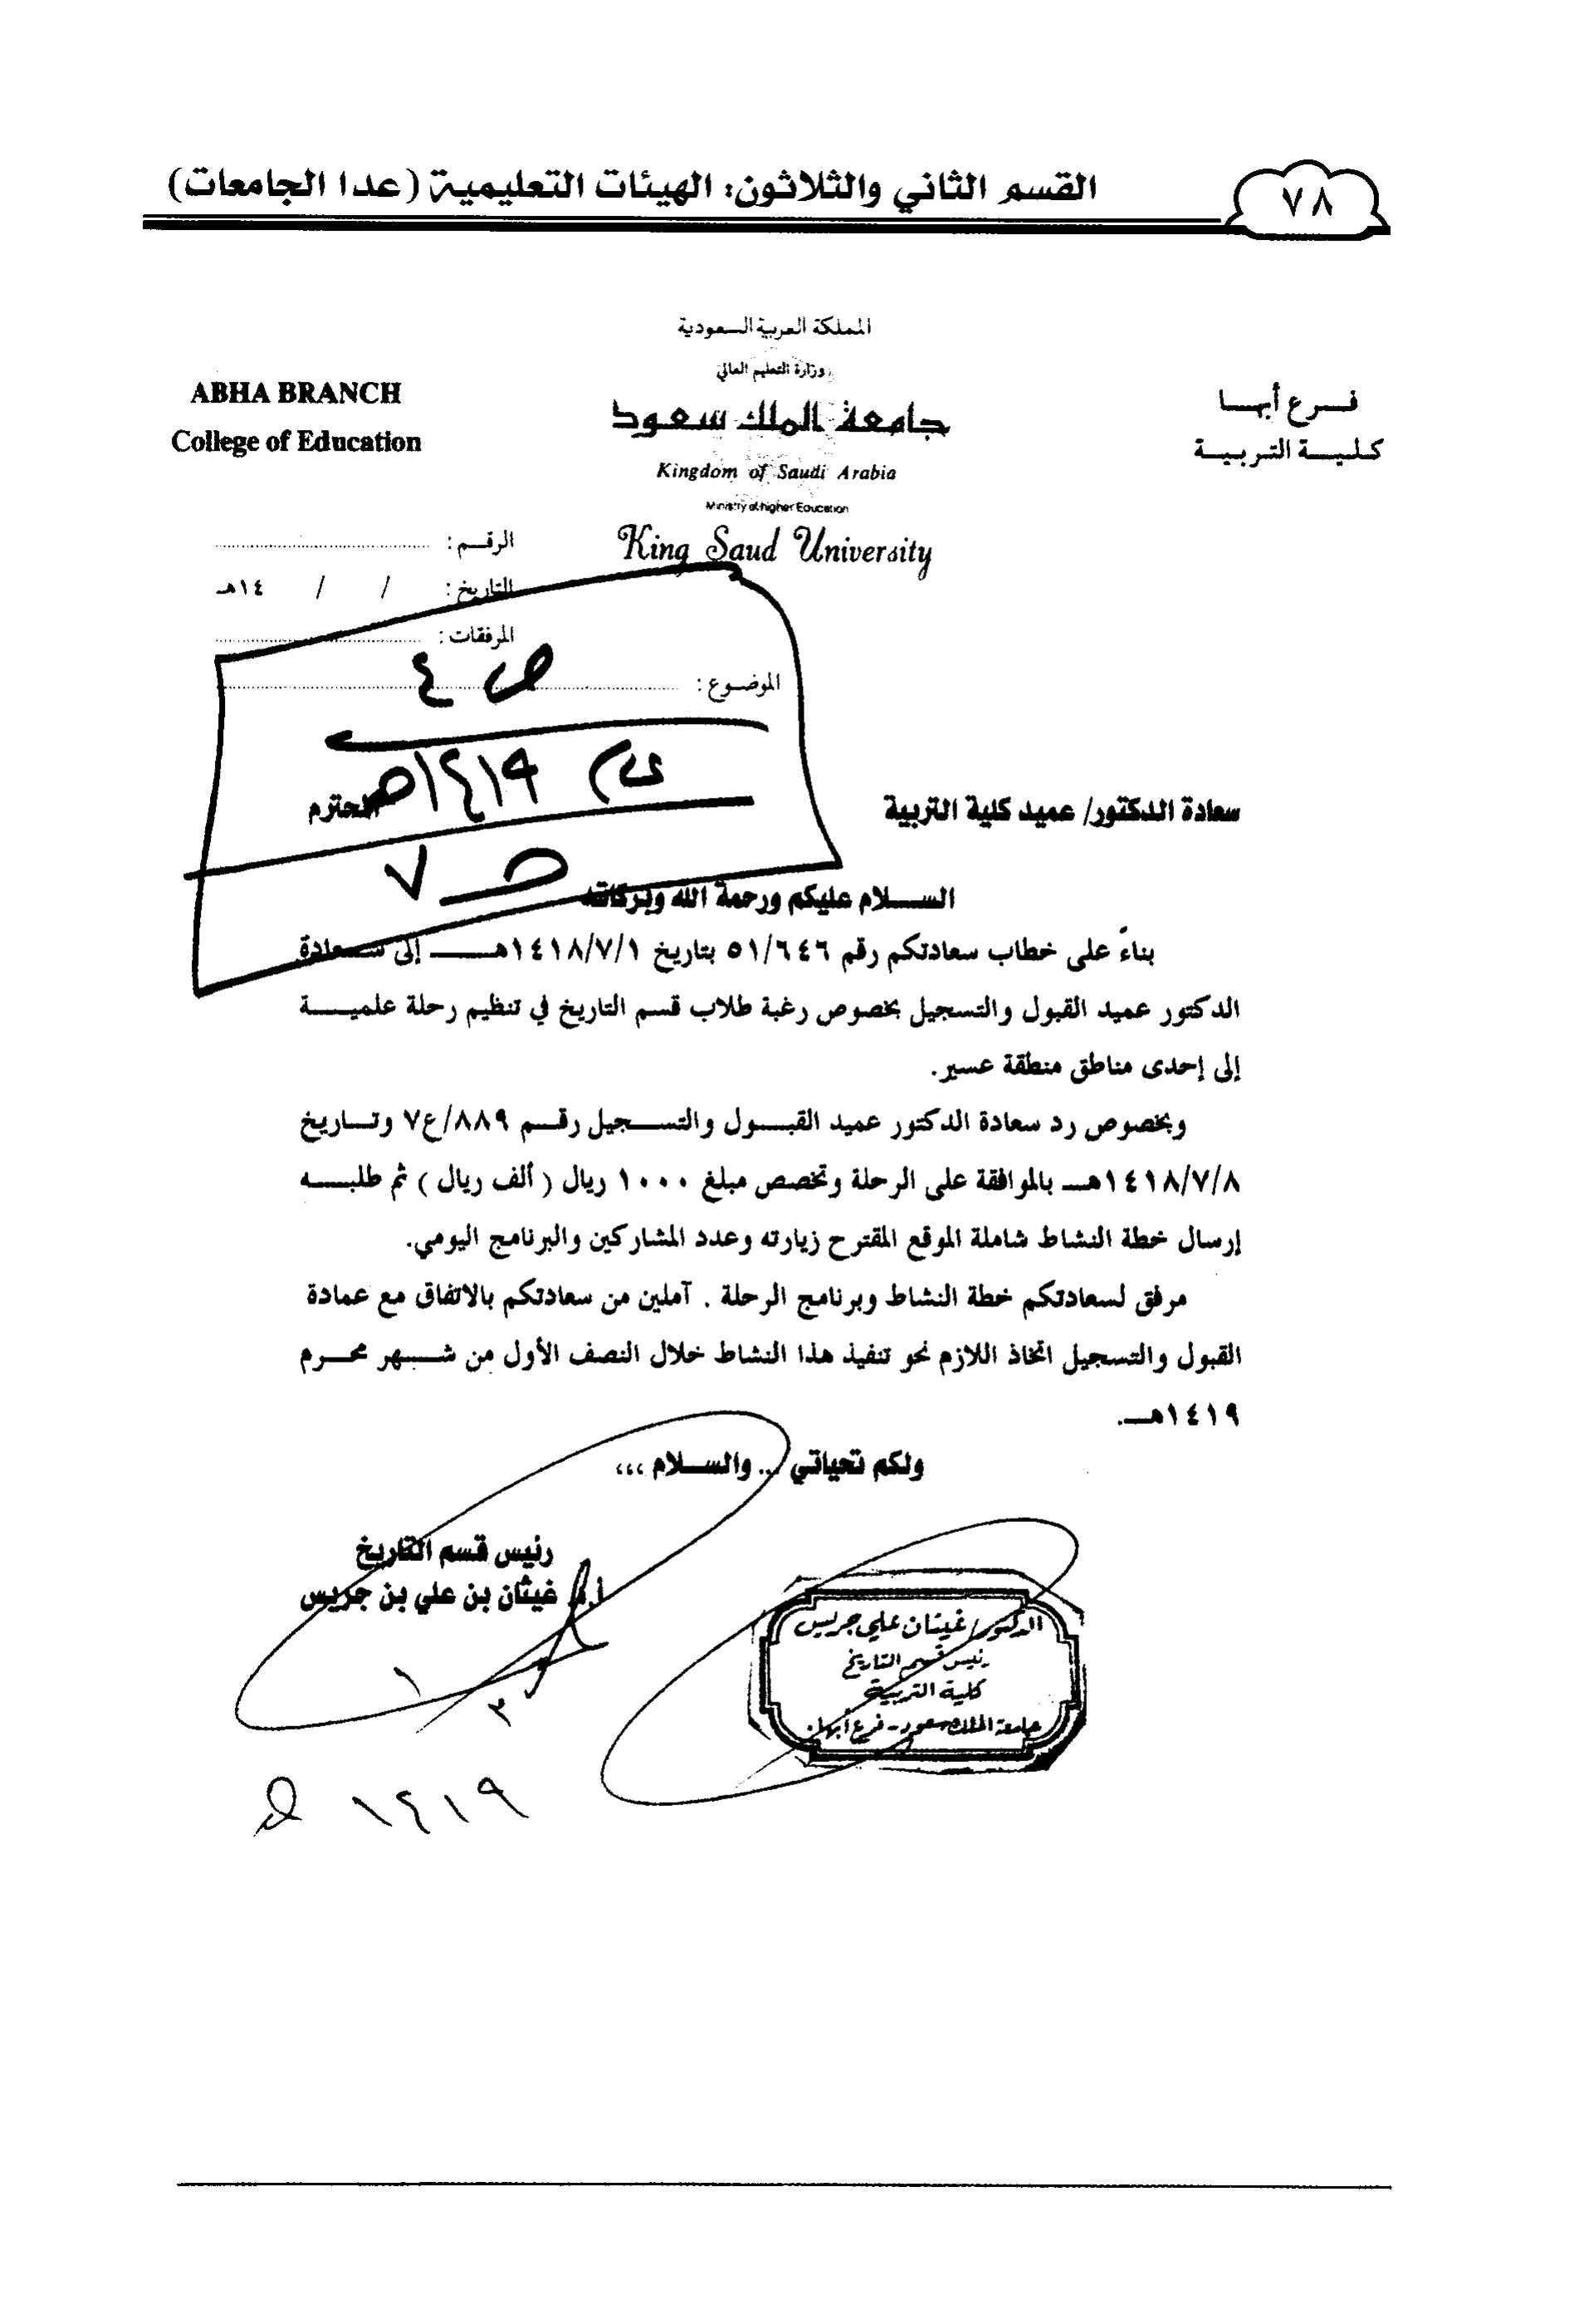 ٧٨
القسم الثاني والثلاثون: الهيئات التعليمية (عدا الجامعات)
المملكة العربية السعودية
وزارة التعليم العالي
جامعة الملك سعود
Kingdom of Saudi Arabia
Ministry of higher Education
King Saud University
فرع أبها
كلية التربية
ABHA BRANCH
College of Education
الرقم :
التاريخ : / / ١٤هـ
المرفقات :
الموضوع :
ص ٤
عام ١٤١٩هـ
ص ٧
سعادة الدكتور/ عميد كلية التربية المحترم
السلام عليكم ورحمة الله وبركاته
بناءً على خطاب سعادتكم رقم ٥١/٦٤٦ بتاريخ ١٤١٨/٧/١هـ إلى سعادة
الدكتور عميد القبول والتسجيل بخصوص رغبة طلاب قسم التاريخ في تنظيم رحلة علمية
إلى إحدى مناطق منطقة عسير.
وبخصوص رد سعادة الدكتور عميد القبول والتسجيل رقم ٨٨٩/ع٧ وتاريخ
١٤١٨/٧/٨هـ بالموافقة على الرحلة وتخصص مبلغ ١٠٠٠ ريال ( ألف ريال ) ثم طلبه
إرسال خطة النشاط شاملة الموقع المقترح زيارته وعدد المشاركين والبرنامج اليومي.
مرفق لسعادتكم خطة النشاط وبرنامج الرحلة . آملين من سعادتكم بالاتفاق مع عمادة
القبول والتسجيل اتخاذ اللازم نحو تنفيذ هذا النشاط خلال النصف الأول من شهر محرم
١٤١٩هـ.
ولكم تحياتي ... والسلام ،،،
رئيس قسم التاريخ
أ.د. غيثان بن علي بن جريس
الدكتور/ غيثان علي جريس
رئيس قسم التاريخ
كلية التربية
جامعة الملك سعود - فرع أبها
١٤١٩هـ